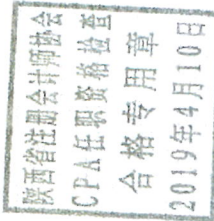 陕西省注册会计师协会
CPA任职资格检查
合格专用章
2019年4月10日